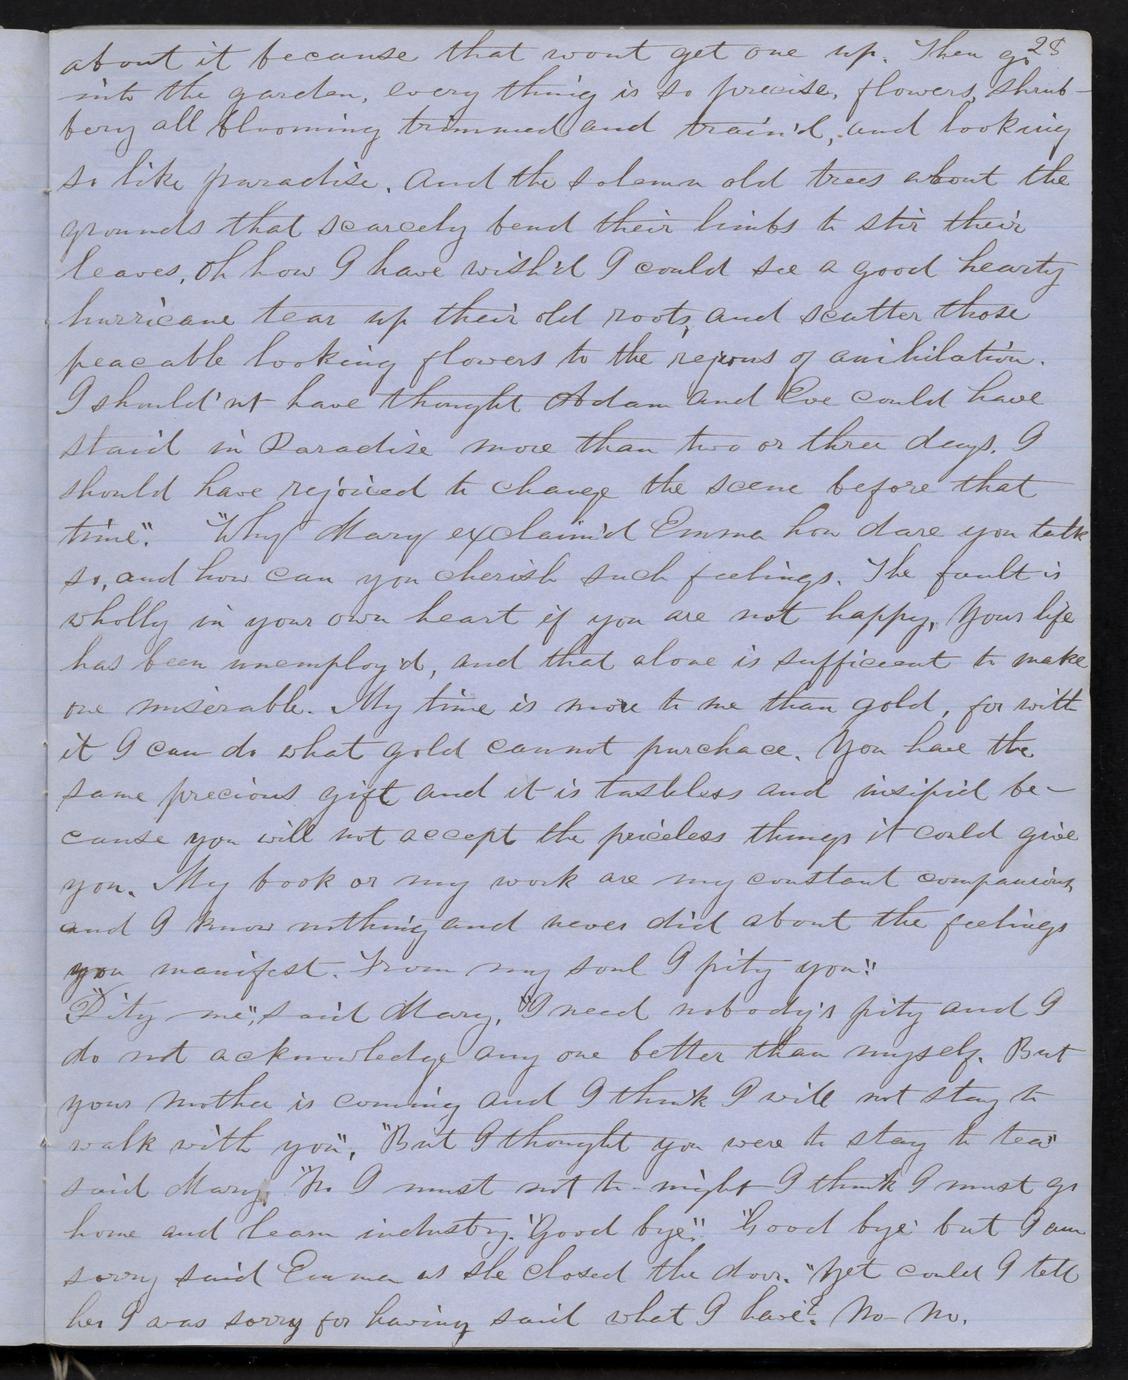 28
about it because that wont get one up. Then go
into the garden, every thing is so precise, flowers, shrub-
bery all blooming trimmed and train'd, and looking
so like paradise. And the solemn old trees about the
grounds that scarcely bend their limbs to stir their
leaves, Oh how I have wish'd I could see a good hearty
hurricane tear up their old roots, and scatter those
peacable looking flowers to the rejons of anihilation.
I should'nt have thought Adam and Eve could have
staid in Paradise more than two or three days. I
should have rejoiced to change the scene before that
time". "Why Mary exclaim'd Emma how dare you talk
so, and how can you cherish such feelings. The fault is
wholly in your own heart if you are not happy, Your life
has been unemploy'd, and that alone is sufficient to make
one miserable. My time is more to me than gold, for with
it I can do what gold cannot purchace. You have the
same precious gift and it is tastless and insipid be-
cause you will not accept the priceless things it could give
you. My book or my work are my constant companions
and I know nothing and never did about the feelings
you manifest. From my soul I pity you".
"Pity me", said Mary, "I need nobody's pity and I
do not acknowledge any one better than myself. But
your mother is coming and I think I will not stay to
walk with you", "But I thought you were to stay to tea"
said Mary, "No I must not to-night I think I must go
home and learn industry. "Good bye". "Good bye but I am
sorry said Emma as she closed the door. "Yet could I tell
her I was sorry for having said what I have? No-No.